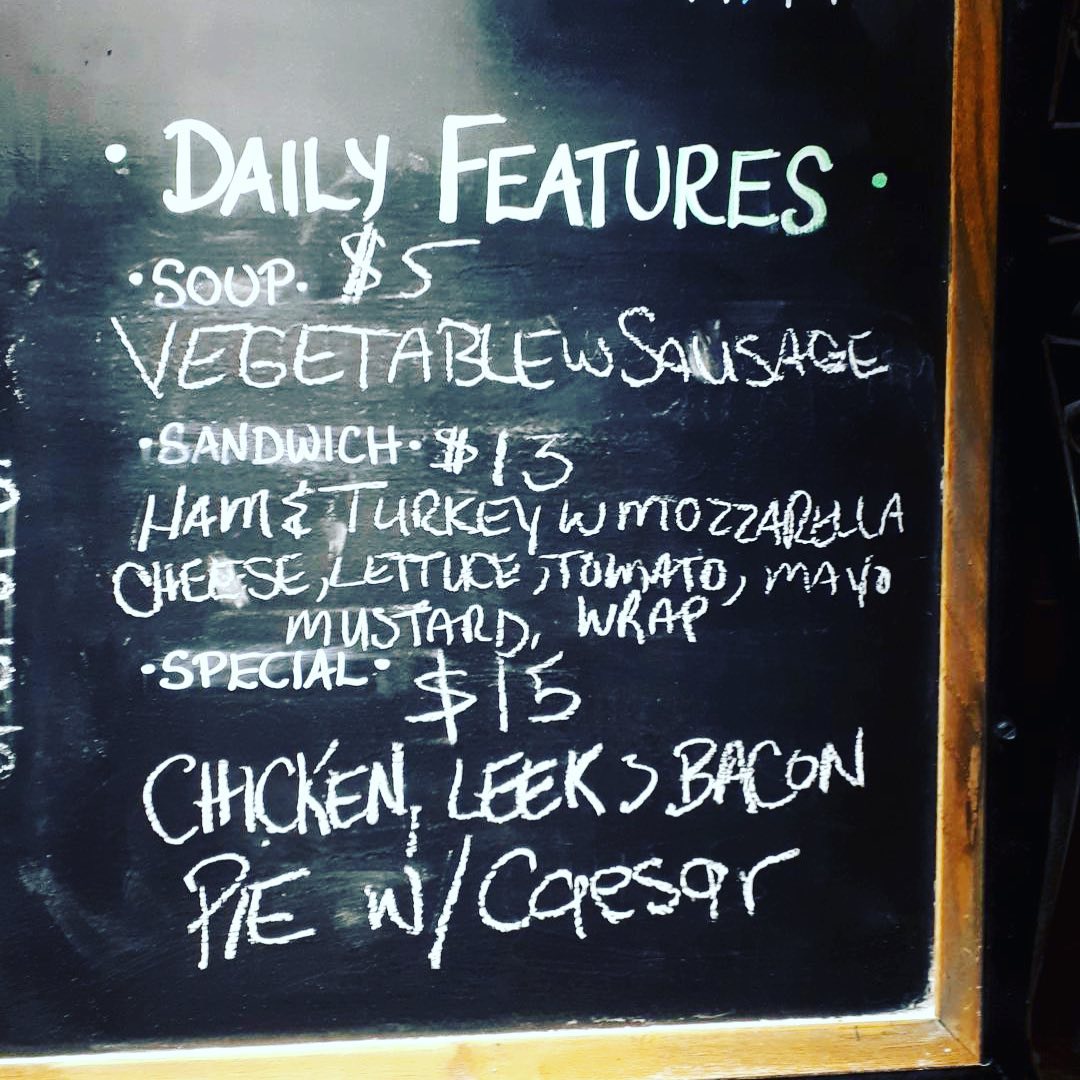 • DAILY FEATURES •
• SOUP • $5
VEGETABLE W SAUSAGE
• SANDWICH • $13
HAM & TURKEY W MOZZARELLA
CHEESE, LETTUCE, TOMATO, MAYO
MUSTARD, WRAP
• SPECIAL • $15
CHICKEN, LEEK, BACON
PIE W/ Caesar